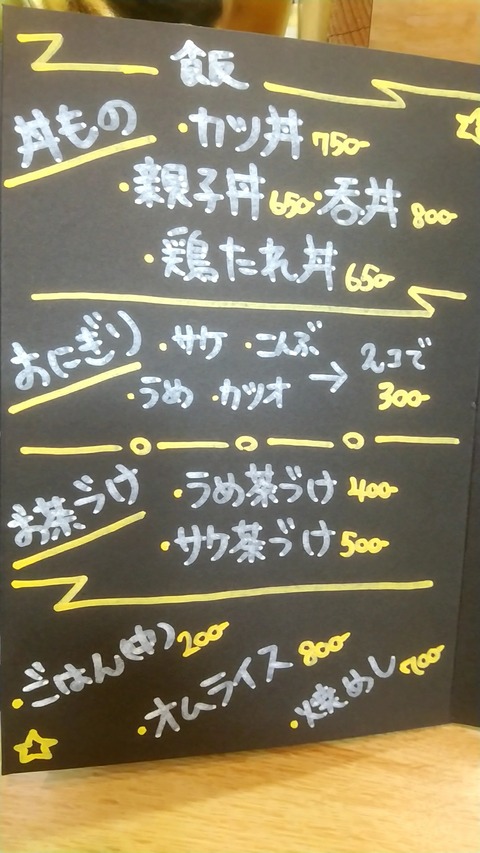 飯
丼もの ・カツ丼 750-
・親子丼 650- ・呑丼 800-
・鶏たれ丼 650-
おにぎり ・サケ ・こんぶ
・うめ ・カツオ → 2コで
300-
お茶づけ ・うめ茶づけ 400-
・サケ茶づけ 500-
・ごはん(中) 200-
・オムライス 800-
・焼めし 700-